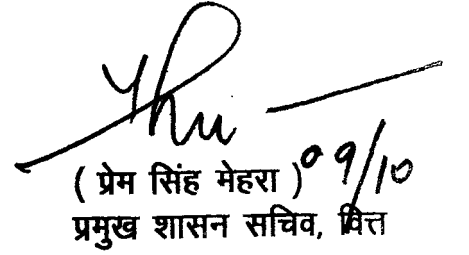 ( प्रेम सिंह मेहरा ) 09/10
प्रमुख शासन सचिव, वित्त